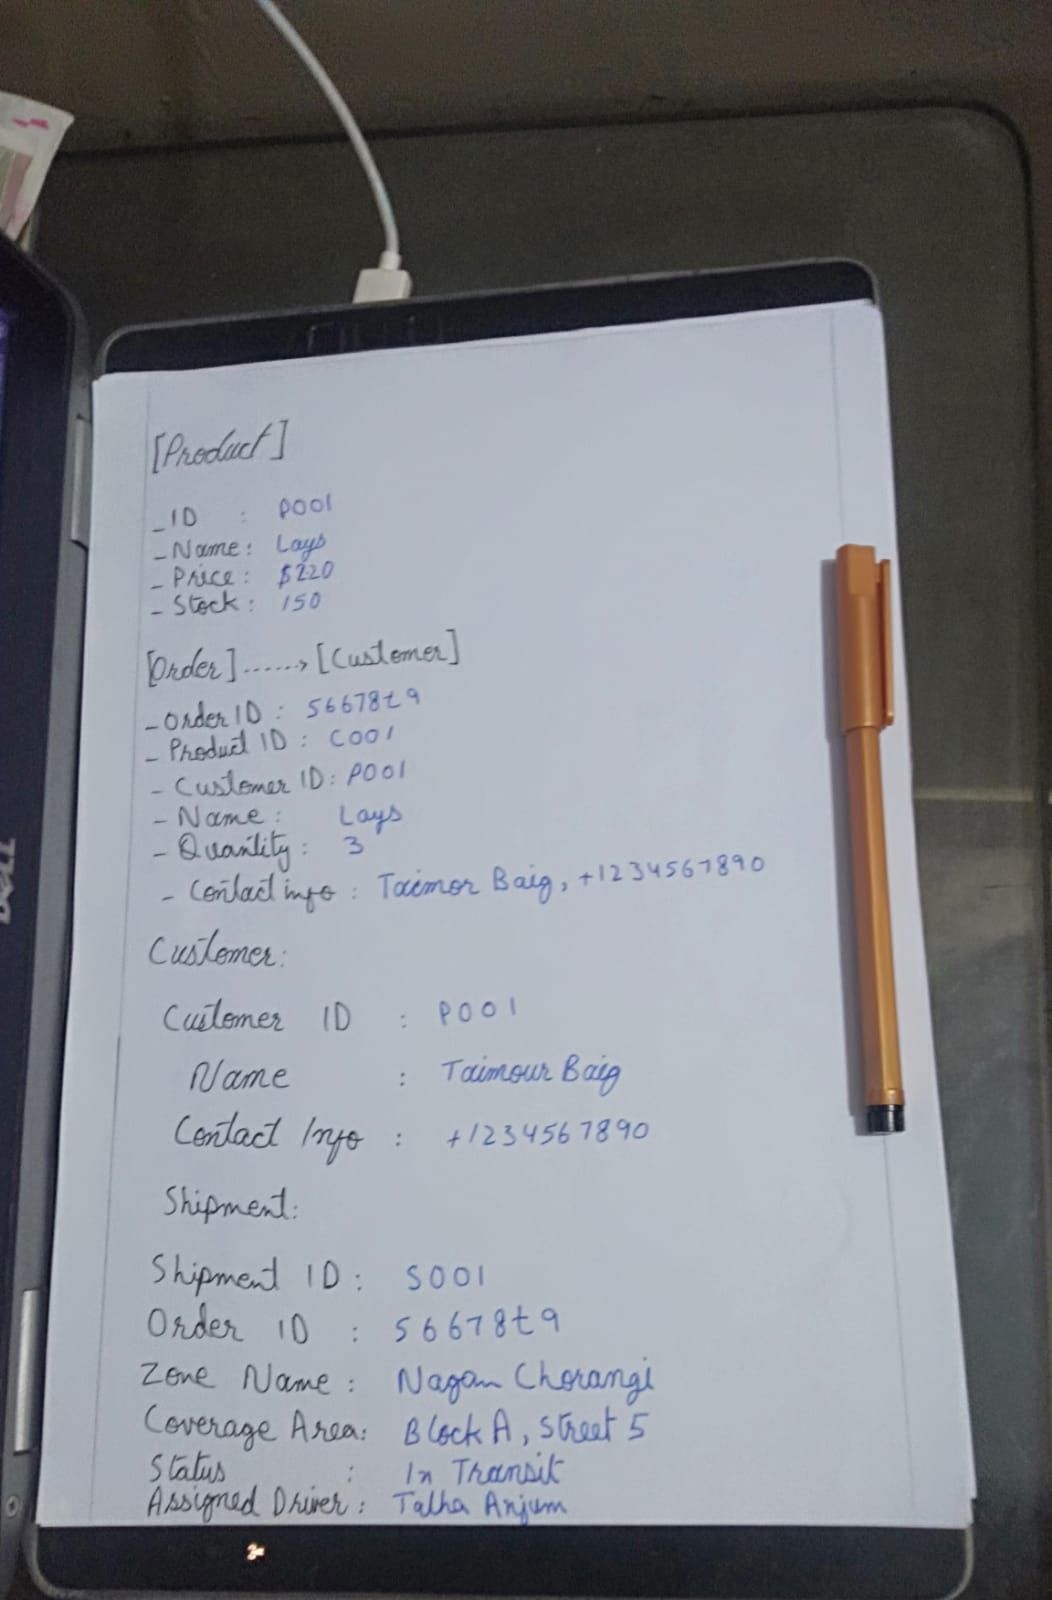 [Product]
- ID : P001
- Name: Lays
- Price: $220
- Stock: 150
[Order]......> [Customer]
- Order ID : 56678t9
- Product ID : C001
- Customer ID: P001
- Name: Lays
- Quantity: 3
- Contact info : Taimor Baig, +1234567890
Customer:
Customer ID : P001
Name : Taimour Baig
Contact Info : +1234567890
Shipment:
Shipment ID: S001
Order ID : 56678t9
Zone Name: Nagan Chorangi
Coverage Area: Block A, Street 5
Status : In Transit
Assigned Driver: Talha Anjum
DELL